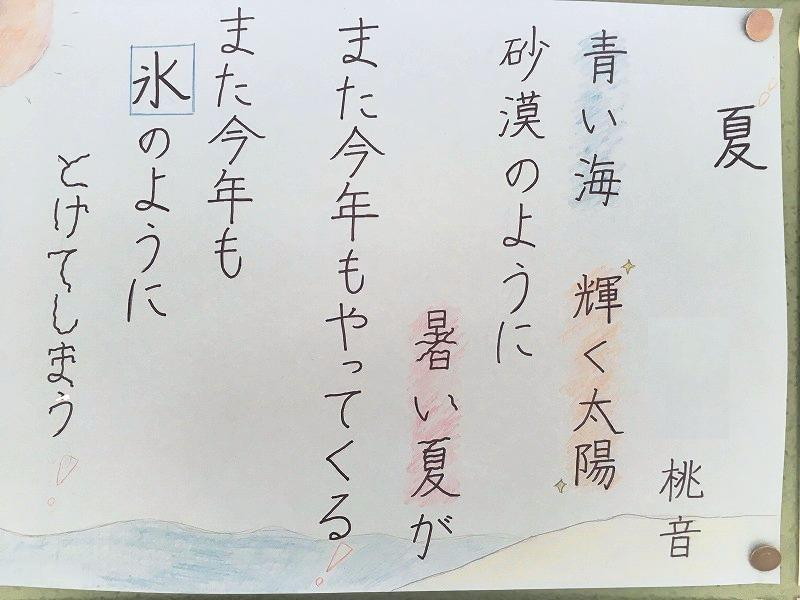 夏!
桃音
青い海 輝く太陽
砂漠のように
暑い夏が
また今年もやってくる!
また今年も
氷のように
とけてしまう!